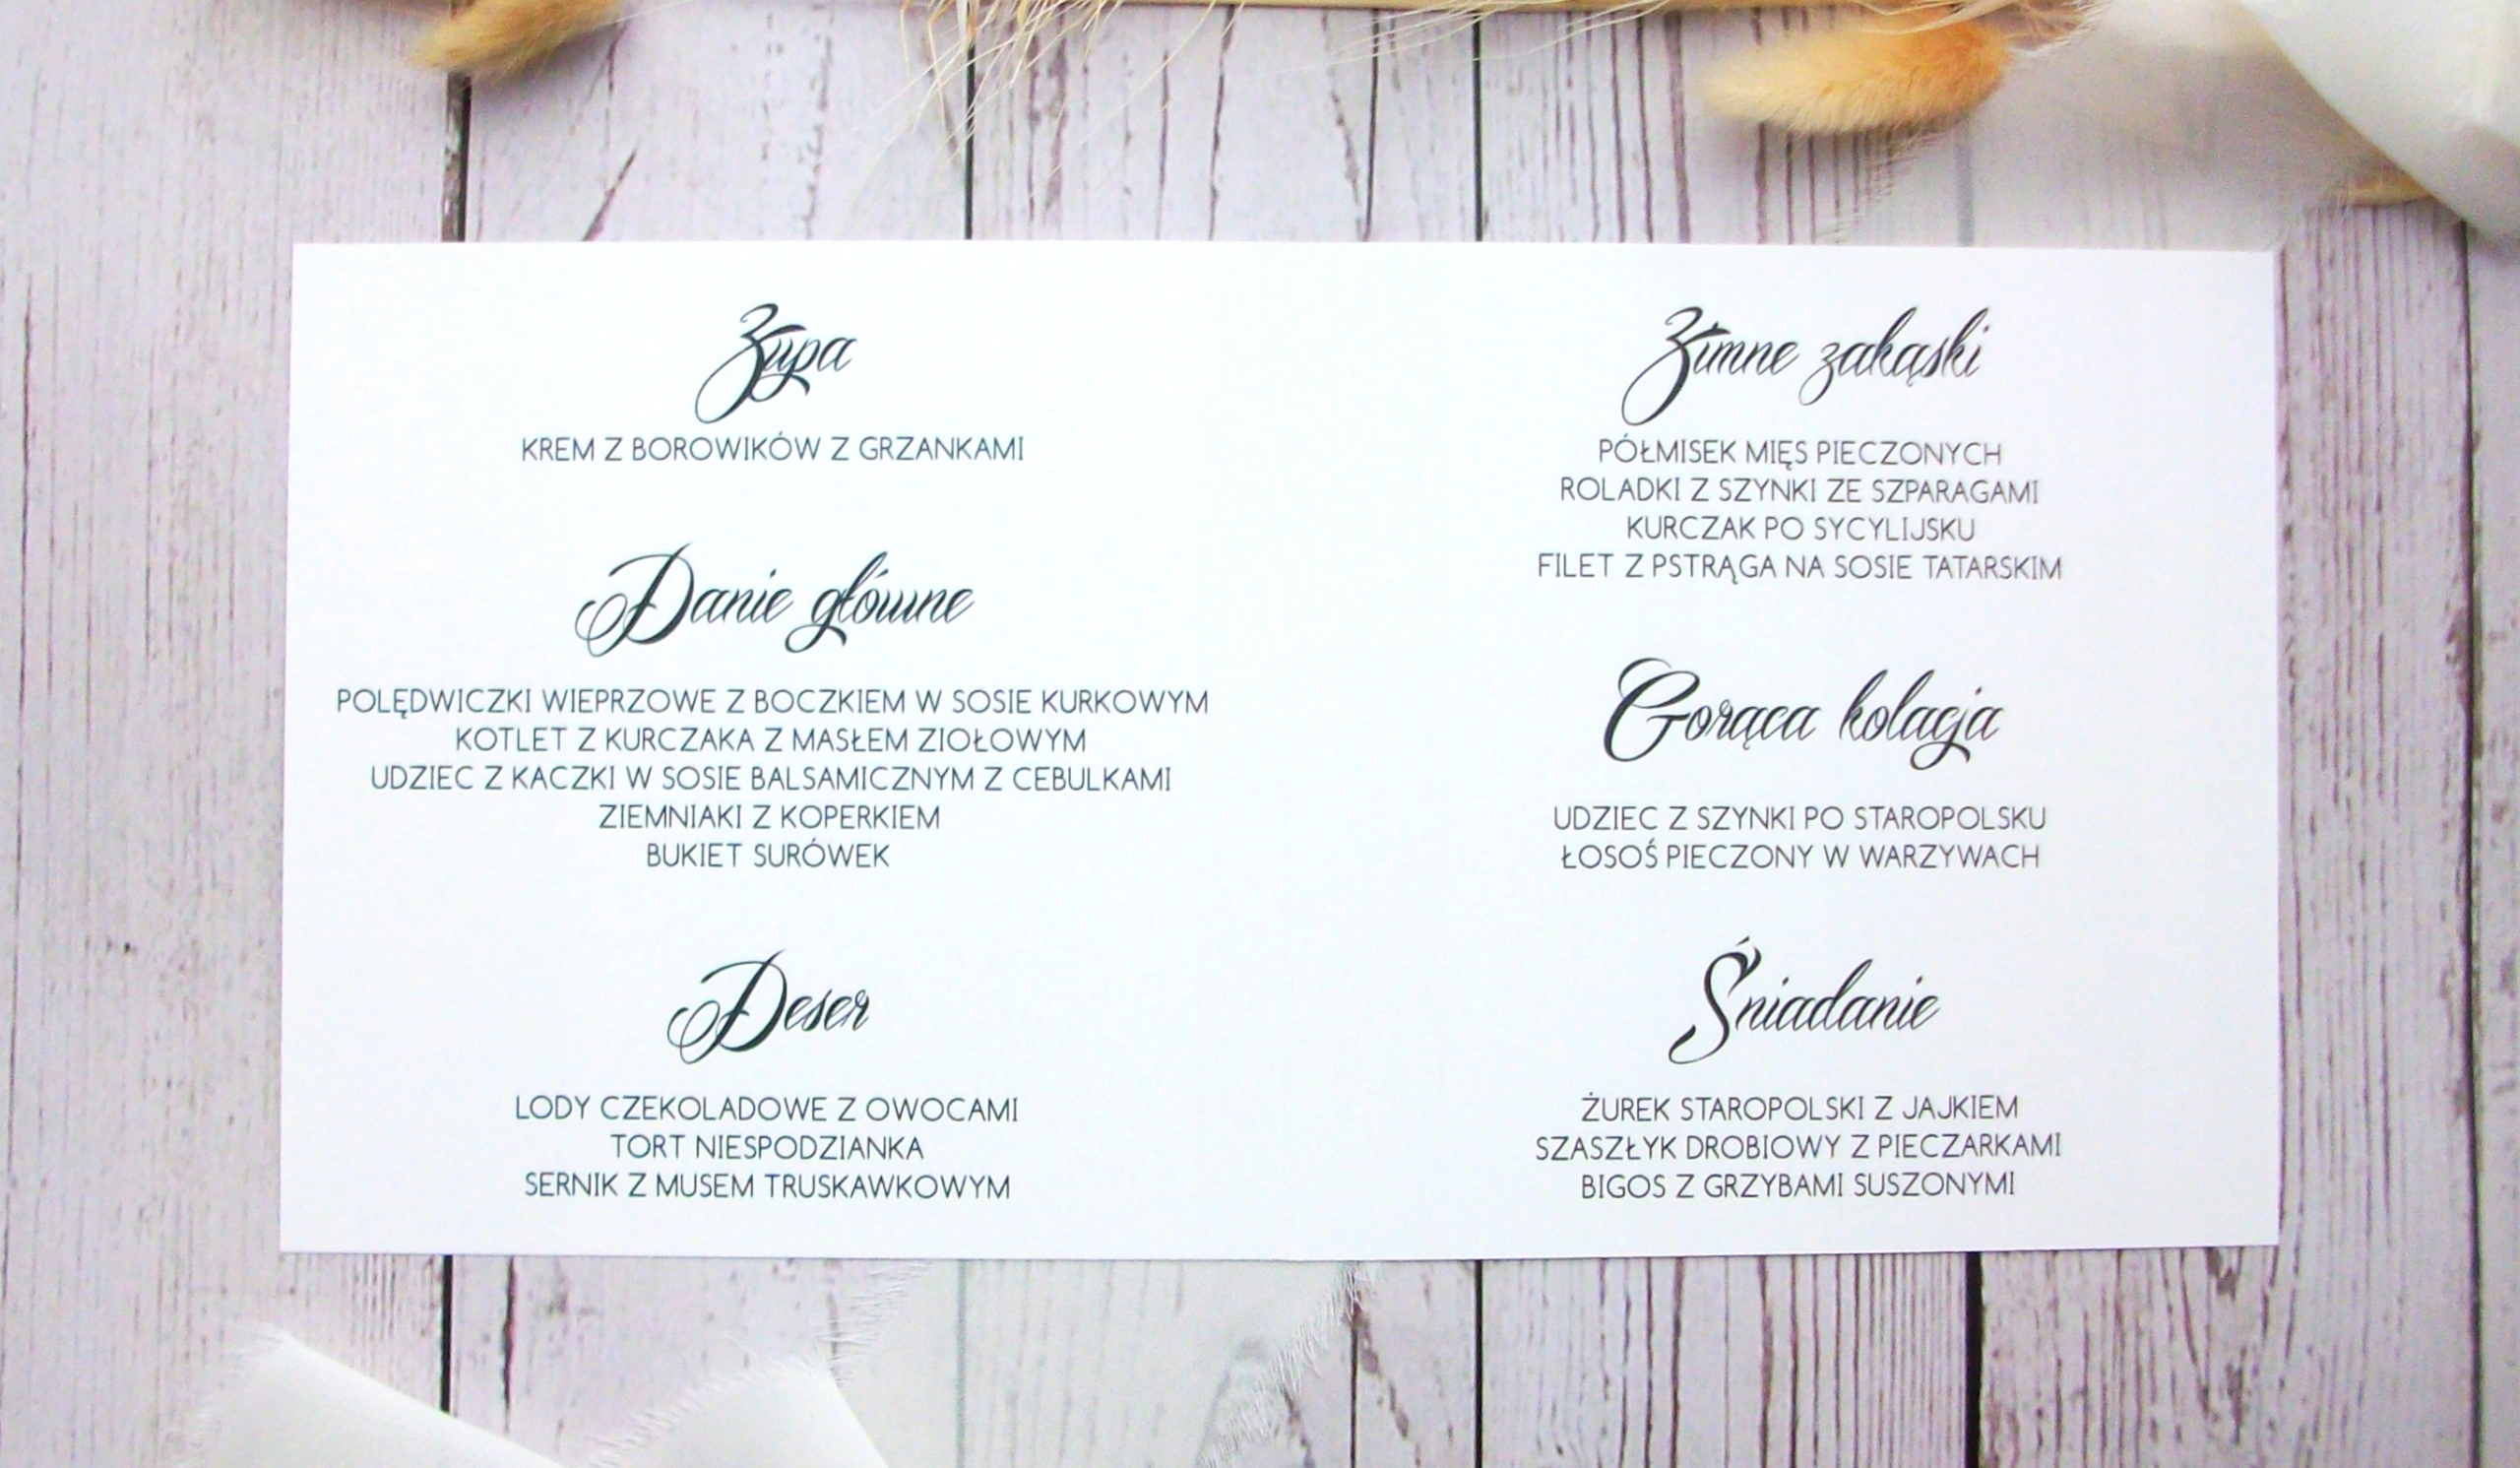 Zupa
KREM Z BOROWIKÓW Z GRZANKAMI
Danie główne
POLĘDWICZKI WIEPRZOWE Z BOCZKIEM W SOSIE KURKOWYM
KOTLET Z KURCZAKA Z MASŁEM ZIOŁOWYM
UDZIEC Z KACZKI W SOSIE BALSAMICZNYM Z CEBULKAMI
ZIEMNIAKI Z KOPERKIEM
BUKIET SURÓWEK
Deser
LODY CZEKOLADOWE Z OWOCAMI
TORT NIESPODZIANKA
SERNIK Z MUSEM TRUSKAWKOWYM
Zimne zakąski
PÓŁMISEK MIĘS PIECZONYCH
ROLADKI Z SZYNKI ZE SZPARAGAMI
KURCZAK PO SYCYLIJSKU
FILET Z PSTRĄGA NA SOSIE TATARSKIM
Gorąca kolacja
UDZIEC Z SZYNKI PO STAROPOLSKU
ŁOSOŚ PIECZONY W WARZYWACH
Śniadanie
ŻUREK STAROPOLSKI Z JAJKIEM
SZASZŁYK DROBIOWY Z PIECZARKAMI
BIGOS Z GRZYBAMI SUSZONYMI